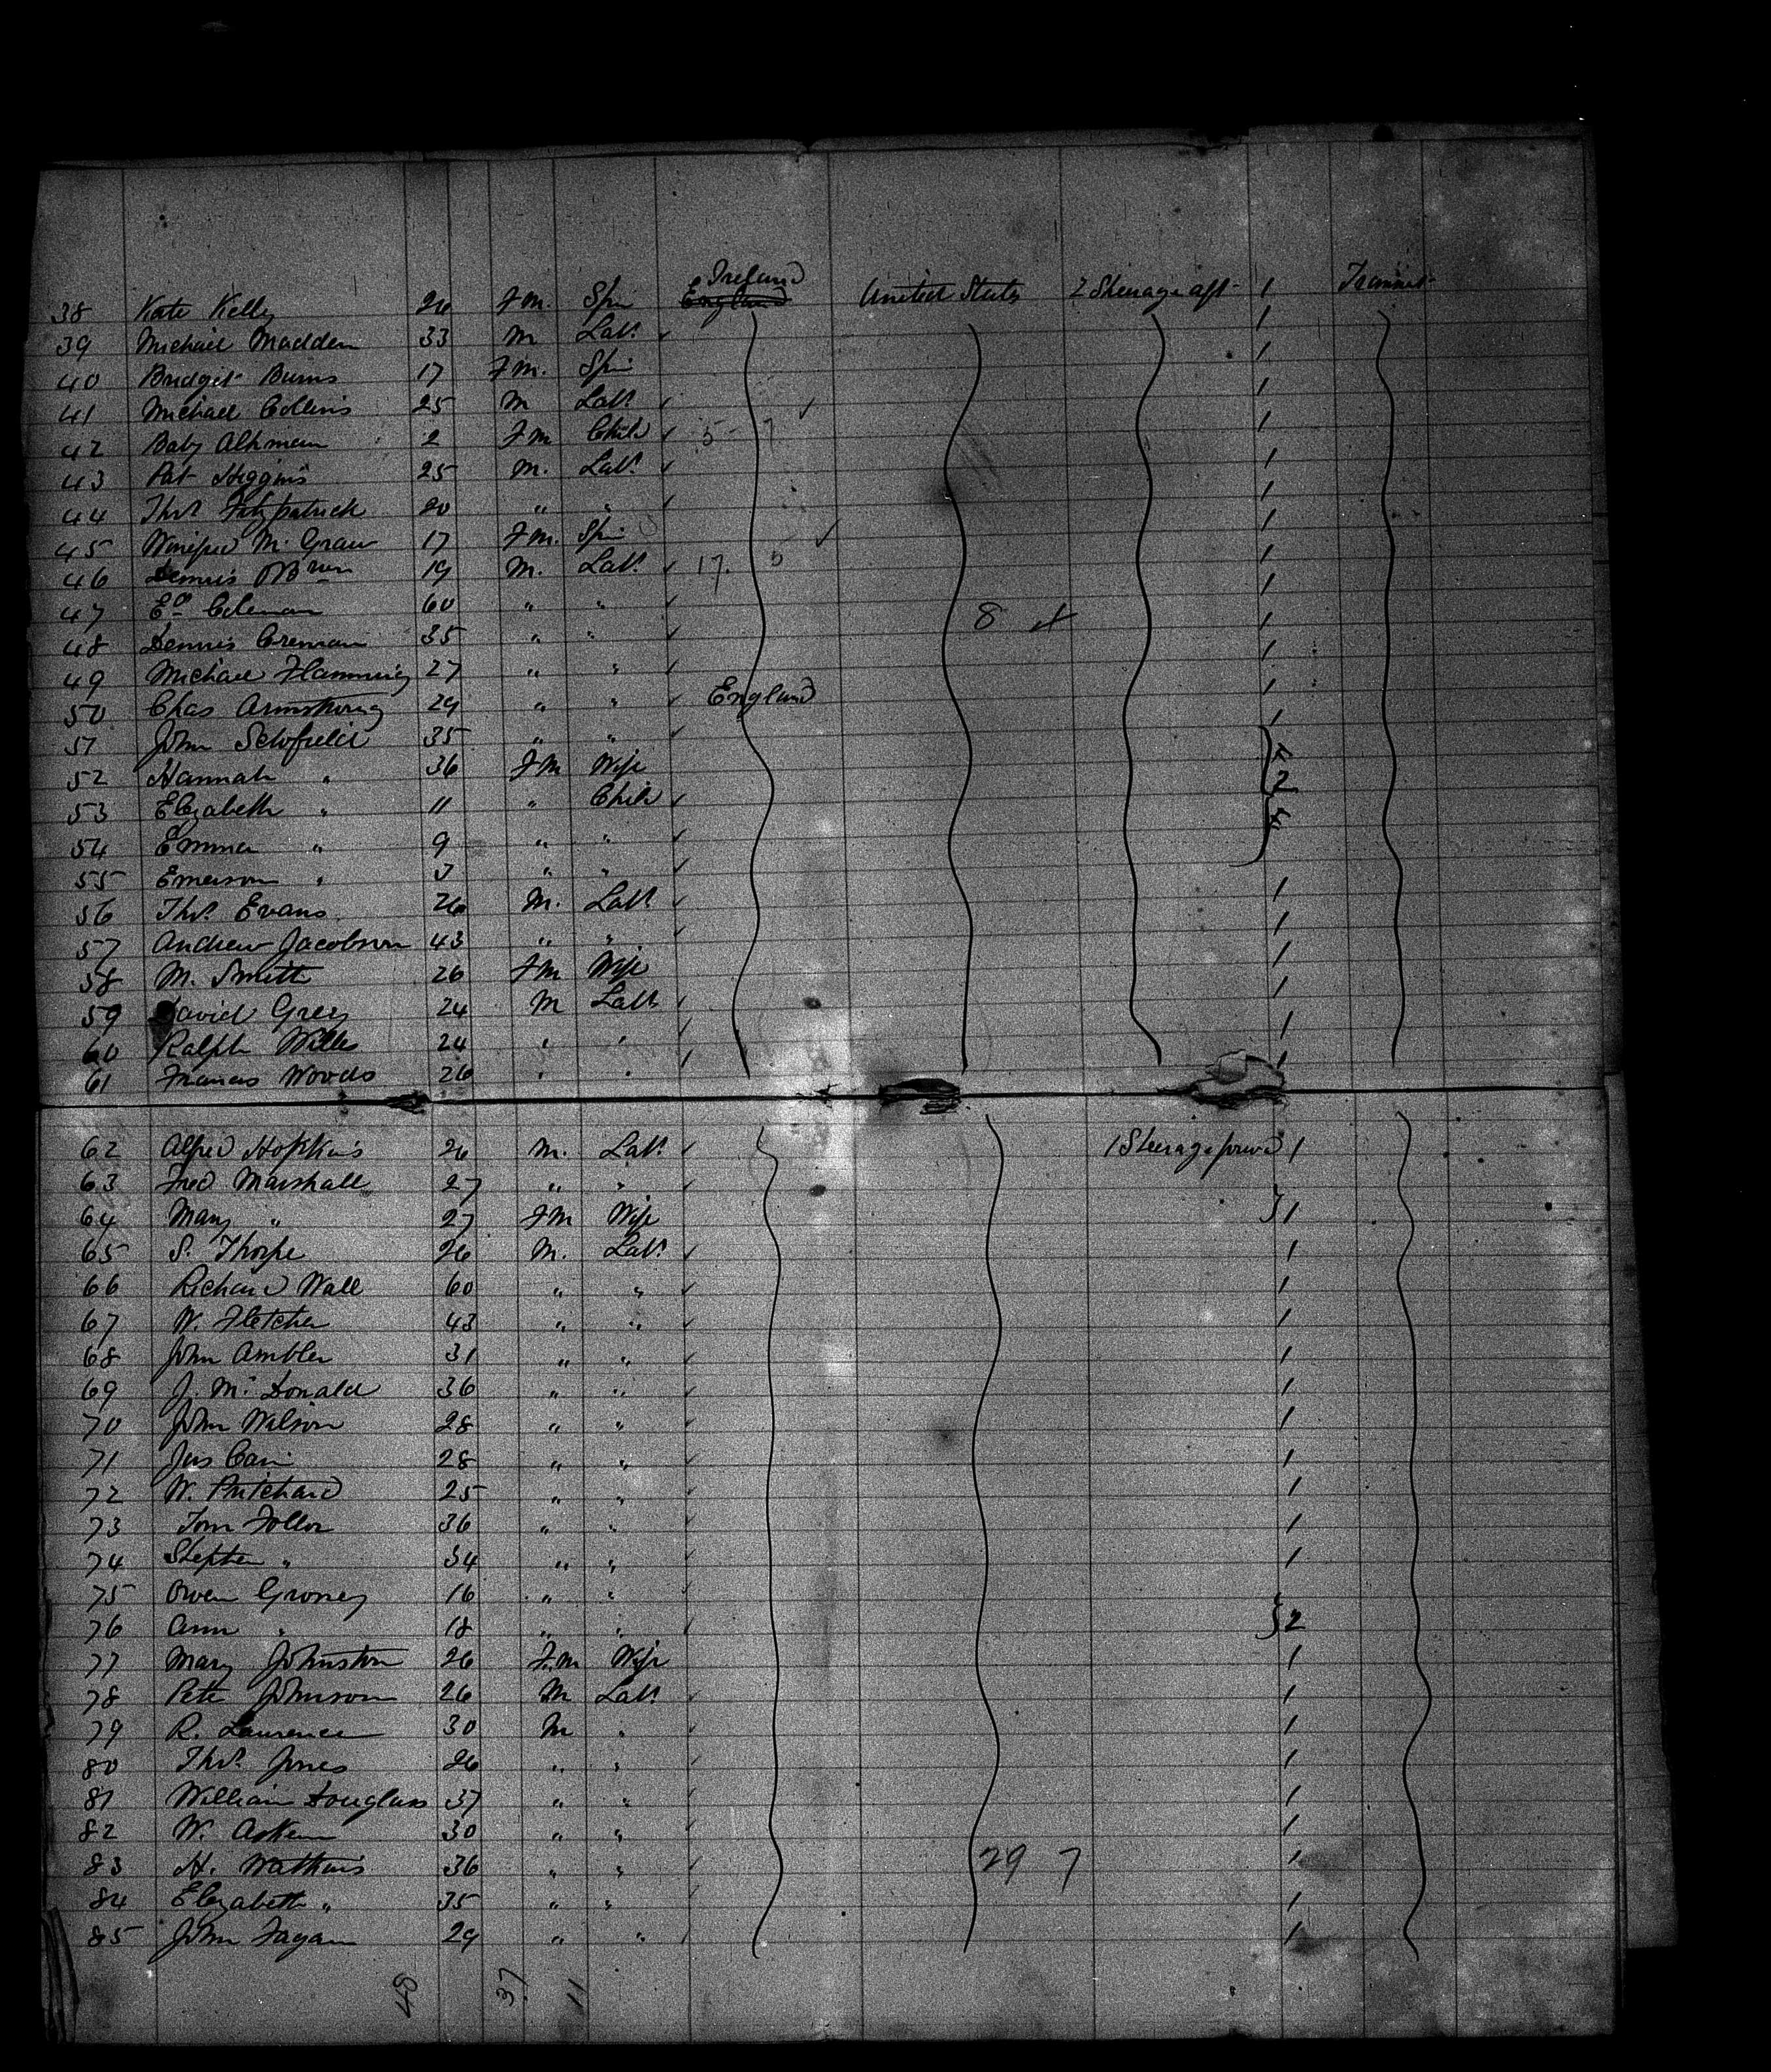 Ireland
38 Kate Kelly 26 Fm. Spin England United States 2 Steerage aft 1 Transit
39 Michael Madden 33 M Labr 1
40 Bridget Burns 17 Fm. Spin 1
41 Michael Collins 25 M Labr 1
42 Baby Altman 2 Fm Child 5 - 7 1
43 Pat Higgins 25 M. Labr 1
44 Thos Fitzpatrick 20 " " 1
45 Winifred McGraw 17 Fm. Spin 1
46 Dennis OBrien 19 M. Labr 17. 5 1
47 Ed Coleman 60 " " 8 1
48 Dennis Creman 35 " " 1
49 Michael Flamming 27 " " 1
50 Chas Armstrong 29 " " England 1
51 John Schofield 35 " " 1
52 Hannah " 36 Fm Wife 2
53 Elizabeth " 11 " Child
54 Emma " 9 " "
55 Emerson " 3 " "
56 Thos Evans 26 M. Labr 1
57 Andrew Jacobson 43 " " 1
58 M. Smith 26 Fm Wife 1
59 David Grey 24 M Labr 1
60 Ralph Wills 24 " " 1
61 Francis Woods 26 " " 1
62 Alfred Hopkins 26 M. Labr 1 Steerage forwd 1
63 Fred Marshall 27 " "
64 Mary " 27 Fm Wife 1
65 S. Thorpe 26 M. Labr 1
66 Richard Wall 60 " " 1
67 W. Fletcher 43 " " 1
68 John Ambler 31 " " 1
69 J. McDonald 36 " " 1
70 John Wilson 28 " " 1
71 Jas Cain 28 " " 1
72 W. Pritchard 25 " " 1
73 Tom 36 " " 1
74 Stephen " 34 " " 1
75 Owen Groney 16 " "
76 Ann " 18 " " 2
77 Mary Johnston 26 Fm Wife 1
78 Peter Johnson 26 M Labr 1
79 R. Laurence 30 M " 1
80 Thos Jones 26 " " 1
81 William Douglass 37 " " 1
82 W. Askew 30 " " 1
83 H. Watkins 36 " " 29 7 1
84 Elizabeth " 35 " " 1
85 John Fagan 29 " " 1
48 37 11